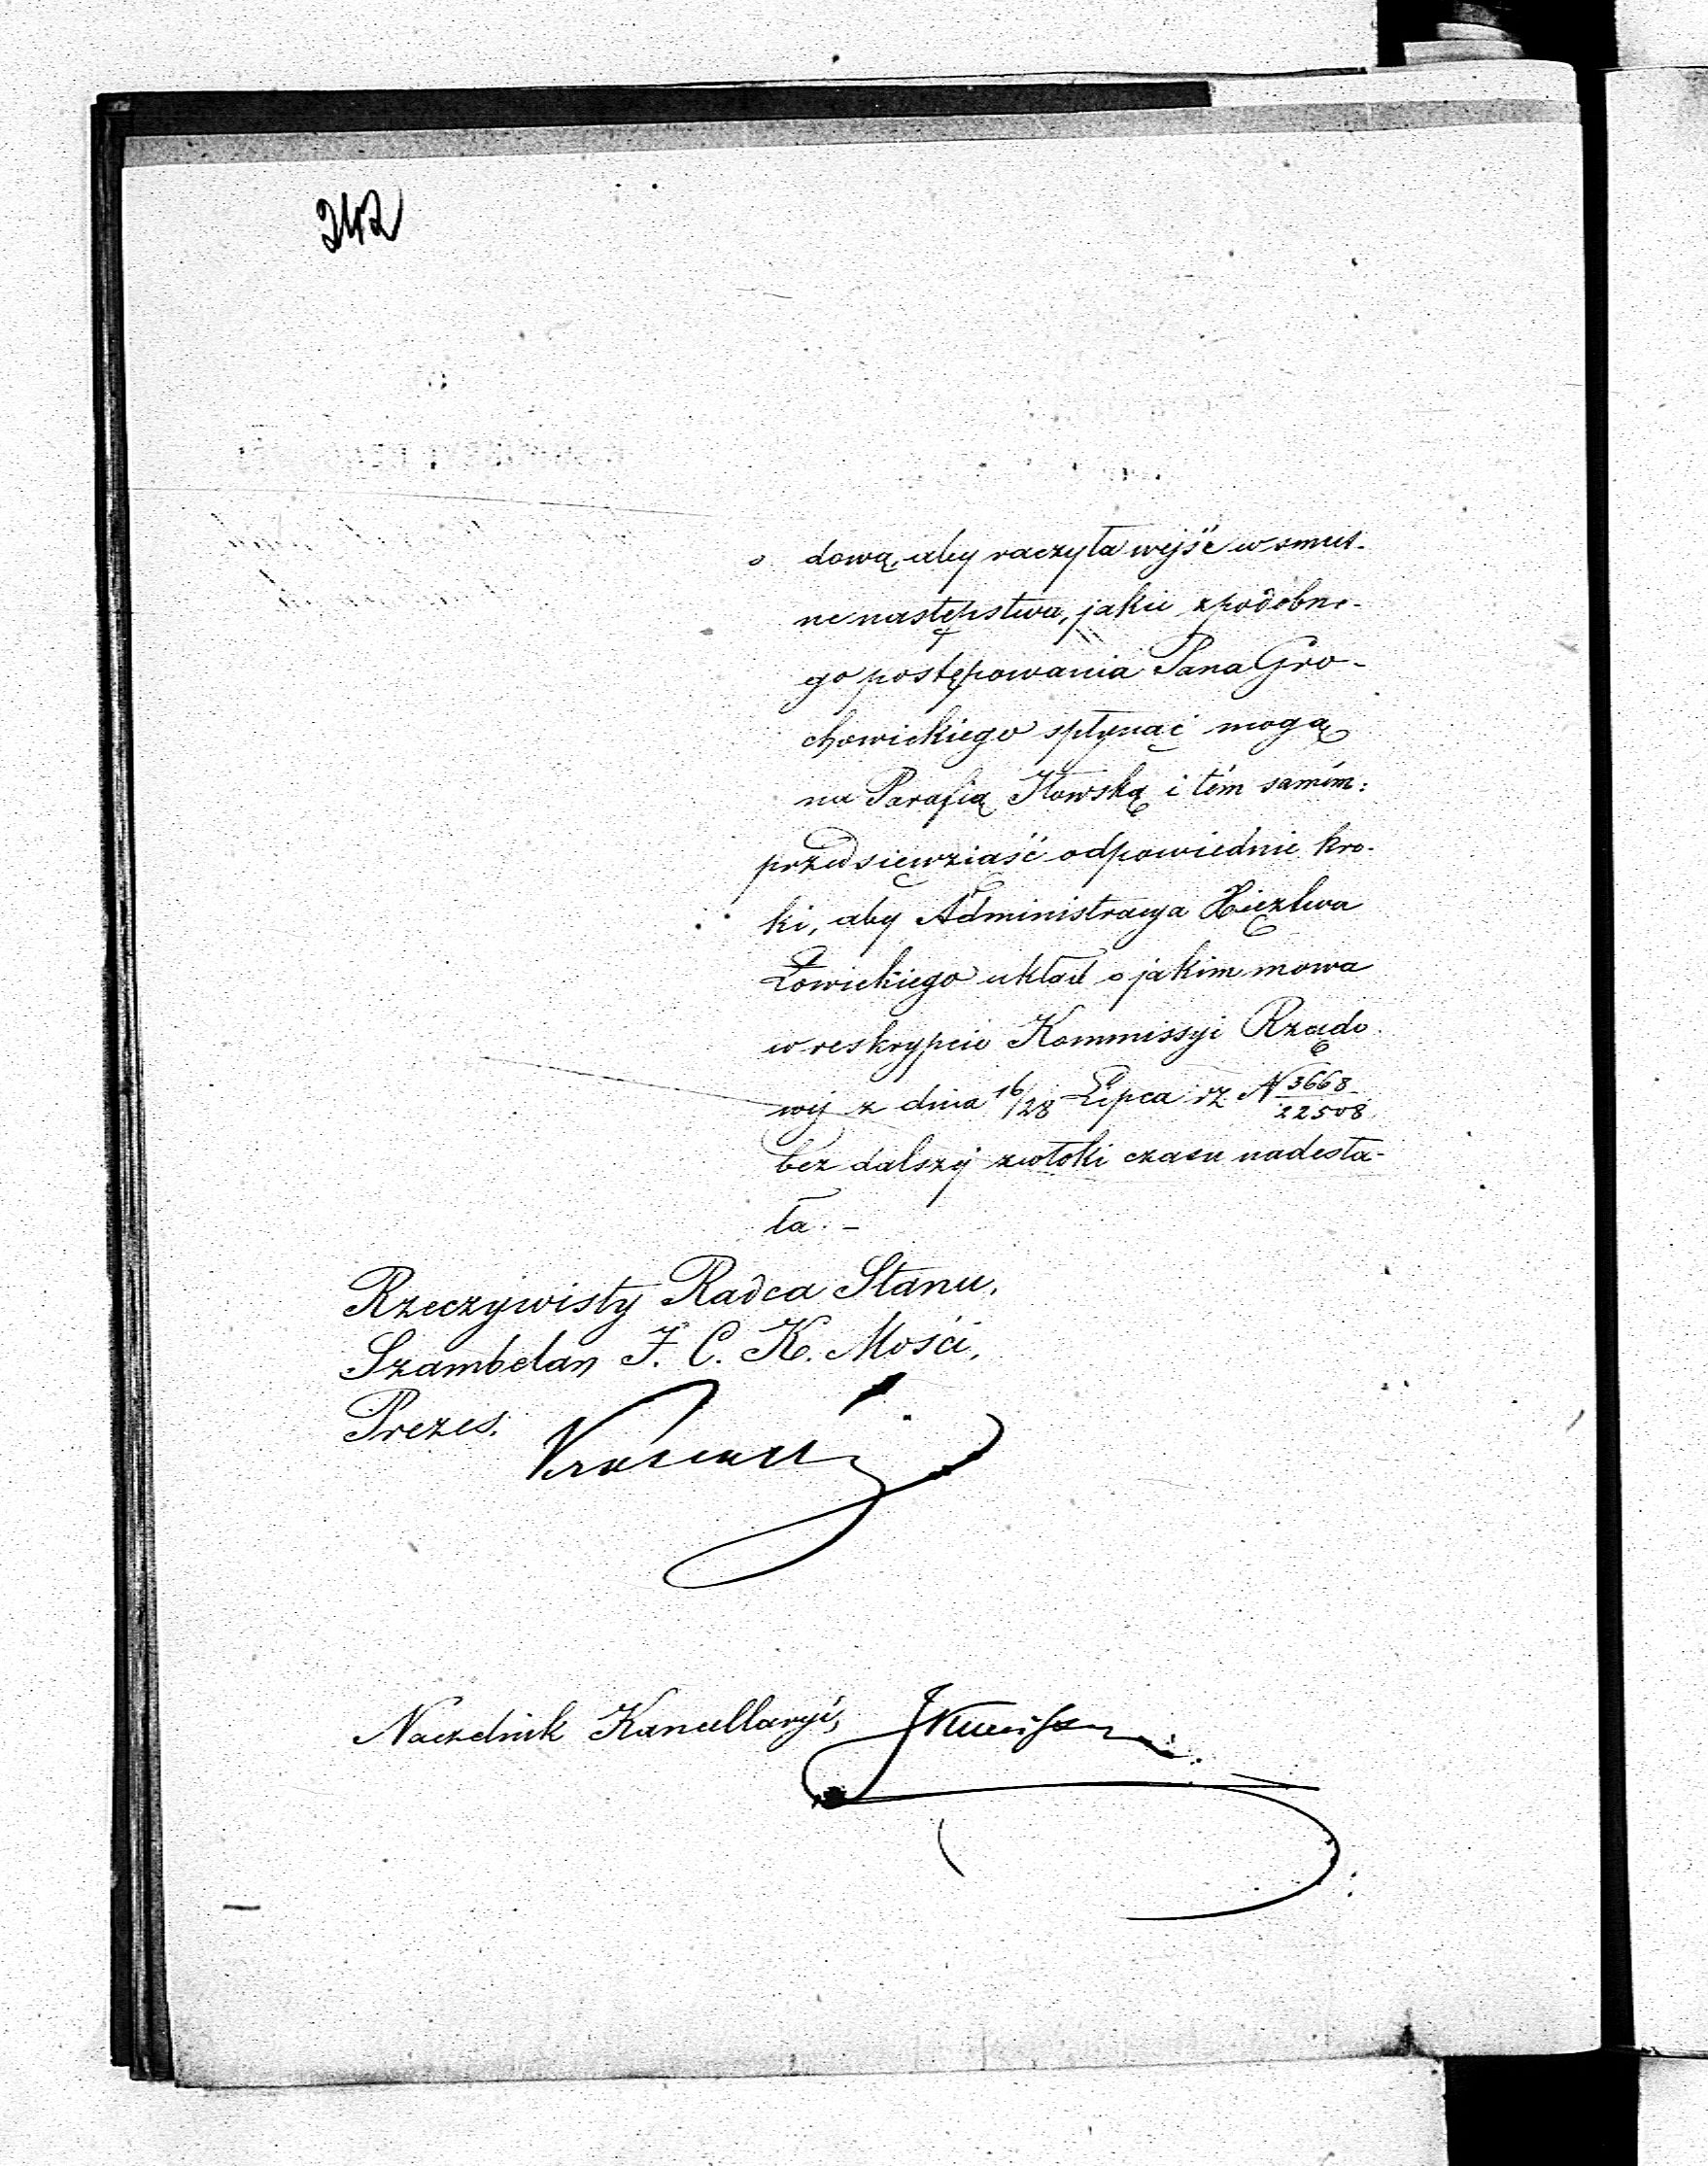 242
dową, aby raczyła wejść w smut-
ne następstwa, jakie z podobne-
go postępowania Pana Gro-
chowickiego spłynąć mogą
na Parafią Iłowską i tém samém
przedsięwziąść odpowiednie kro-
ki, aby Administracya Xięztwa
Łowickiego układ o jakim mowa
w reskrypcie Kommissyi Rządo-
wéj z dnia 16/28 Lipca rz N 3668/22508
bez dalszéj zwłoki czasu nadesła-
ła. –
Rzeczywisty Radca Stanu,
Szambelan J. C. K. Mości,
Prezes.
Naczelnik Kancellaryi,